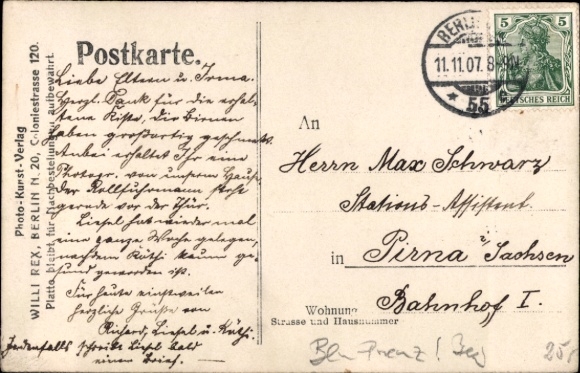 Photo-Kunst-Verlag
WILLI REX, BERLIN N. 20, Coloniestrasse 120.
Platte bleibt für Nachbestellungen aufbewahrt.
Postkarte.
Liebe Eltern u. Irma.
Herzl. Dank für die erhal-
tene Kiste, die Birnen
haben großartig geschmeckt.
Anbei erhaltet Ihr eine
Photogr. von unserm Hause,
Der Rollfuhrmann steht
gerade vor der Tür.
Liesel hat wieder mal
eine ganze Woche gelegen,
nachdem Käthi kaum ge-
sund geworden ist.
Für heute einstweilen
herzliche Grüße von
Richard, Liesel u. Käthi.
Jedenfalls schreibt Liesel bald
einen Brief.
BERLIN
11.11.07. 8-9N
* 55
5 5
DEUTSCHES REICH
An
Herrn Max Schwarz
Stations-Assistent
in Pirna i/Sachsen
Bahnhof I.
Wohnung
Strasse und Hausnummer
Bln Prenz! Berg
25,-